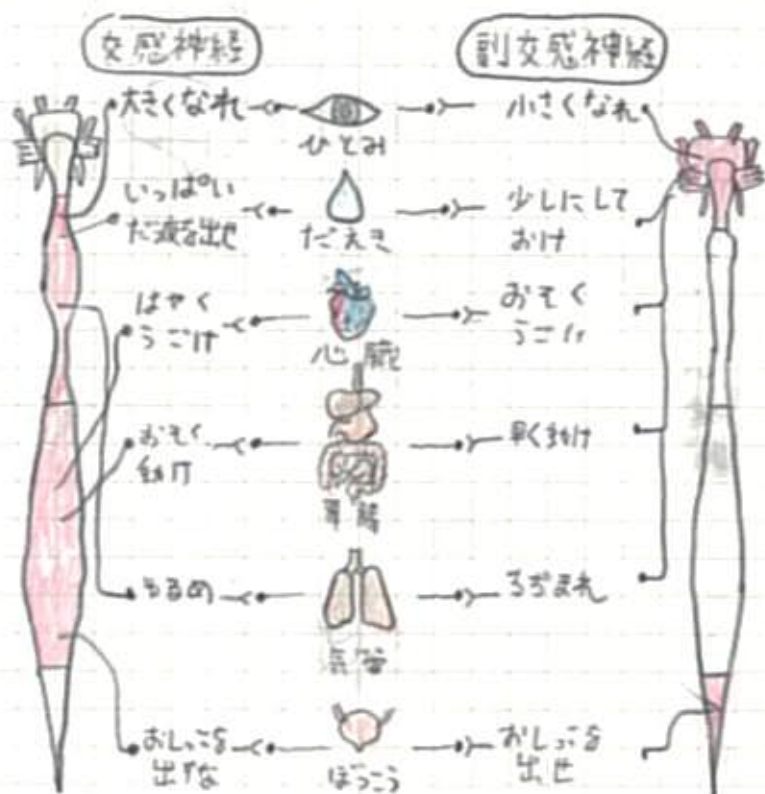 交感神経
副交感神経
大きくなれ
ひとみ
小さくなれ
いっぱい
だ液を出せ
だえき
少しにして
おけ
はやく
うごけ
心臓
おそく
うごけ
おそく
動け
胃腸
早く動け
ゆるめ
気管
ちぢまれ
おしっこを
出すな
ぼうこう
おしっこを
出せ